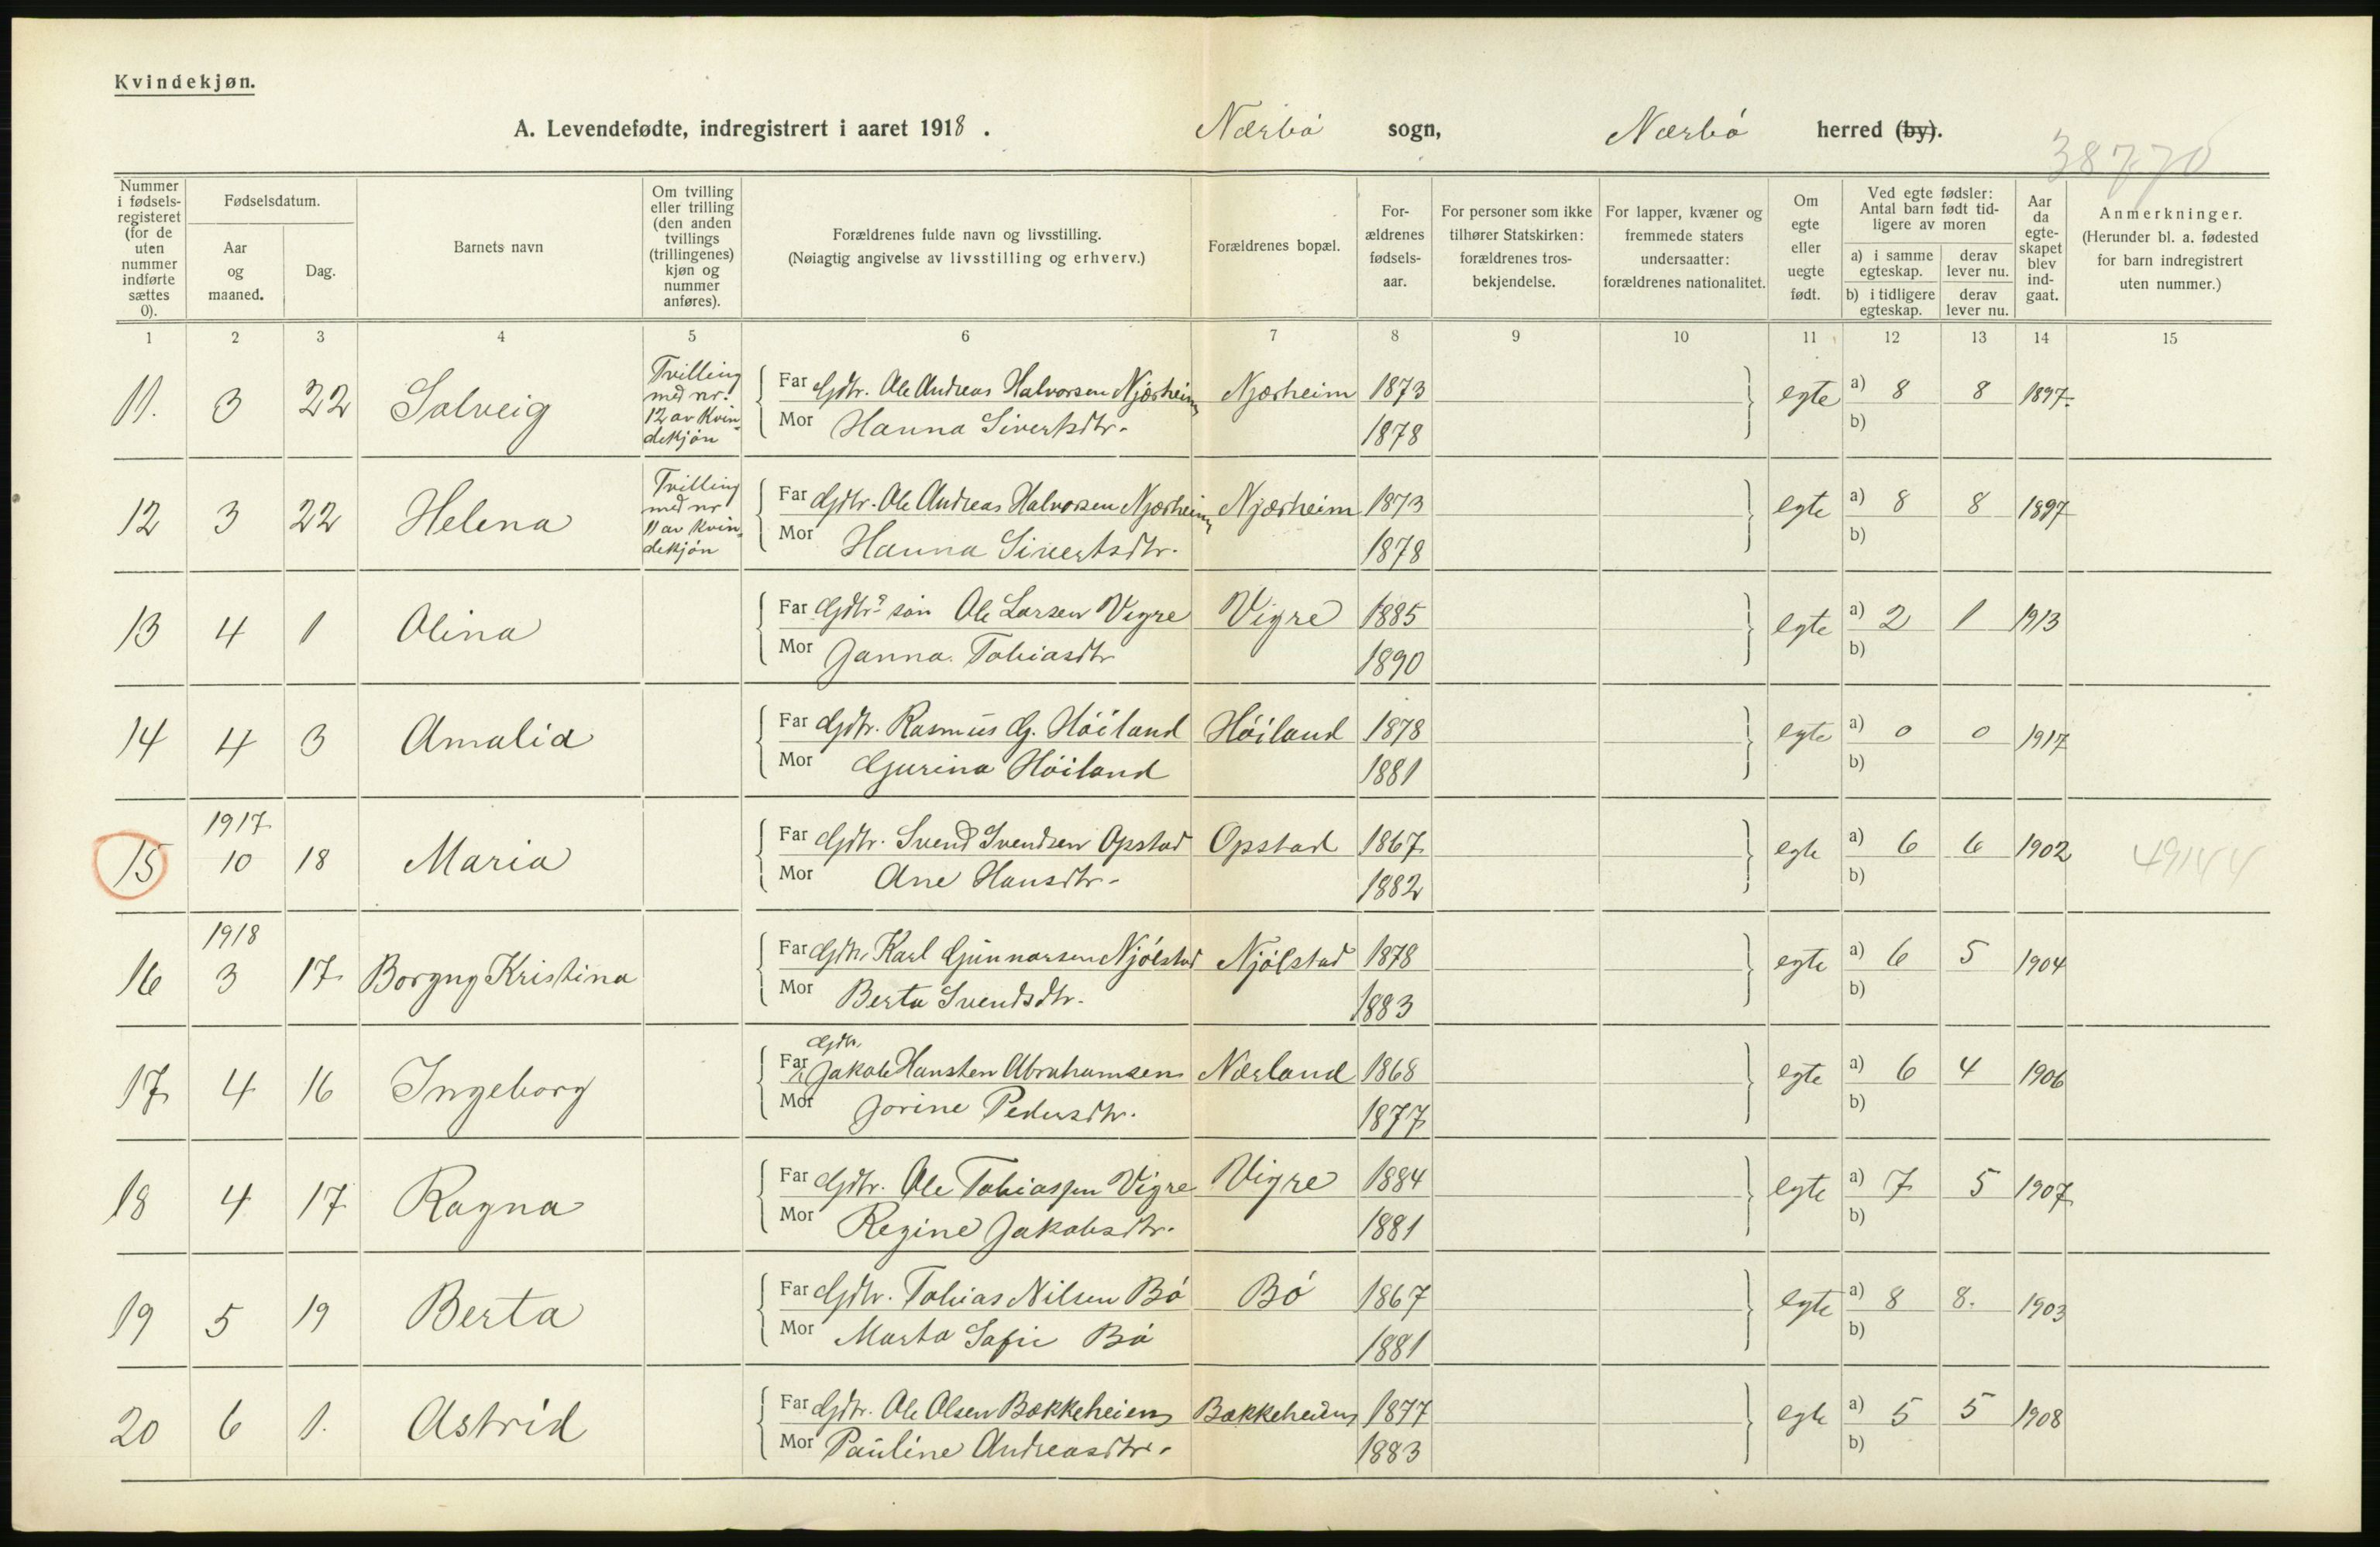 Kvindekjøn.
A. Levendefødte, indregistrert i aaret 1918 . Nærbø sogn, Nærbø herred (by).
38770
Nummer i fødselsregisteret (for de uten nummer indførte sættes 0).
Fødselsdatum.
Aar og maaned.
Dag.
Barnets navn
Om tvilling eller trilling (den anden tvillings (trillingenes) kjøn og nummer anføres).
Forældrenes fulde navn og livsstilling.
(Nøiagtig angivelse av livsstilling og erhverv.)
Forældrenes bopæl.
Forældrenes fødselsaar.
For personer som ikke tilhører Statskirken: forældrenes trosbekjendelse.
For lapper, kvæner og fremmede staters undersaatter: forældrenes nationalitet.
Om egte eller uegte født.
Ved egte fødsler: Antal barn født tidligere av moren
a) i samme egteskap. derav lever nu.
b) i tidligere egteskap. derav lever nu.
Aar da egteskapet blev indgaat.
Anmerkninger.
(Herunder bl. a. fødested for barn indregistrert uten nummer.)
1 2 3 4 5 6 7 8 9 10 11 12 13 14 15
11. 3 22 Solveig Tvilling med nr. 12 av Kvindekjøn Far Gdbr. Ole Andreas Halvorsen Njærheim Njærheim 1873 egte a) 8 8 1897
Mor Hanna Sivertsdtr. 1878 b)
12 3 22 Helena Tvilling med nr 11 av Kvindekjøn Far Gdbr. Ole Andreas Halvorsen Njærheim Njærheim 1873 egte a) 8 8 1897
Mor Hanna Sivertsdtr. 1878 b)
13 4 1 Olina Far Gdbrs søn Ole Larsen Vigre Vigre 1885 egte a) 2 1 1913
Mor Janna Tobiasdtr 1890 b)
14 4 3 Amalia Far Gdbr. Rasmus G. Høiland Høiland 1878 egte a) 0 0 1917
Mor Gurina Høiland 1881 b)
15 1917 10 18 Maria Far Gdbr. Svend Svendsen Opstad Opstad 1867 egte a) 6 6 1902 49144
Mor Ane Hansdtr. 1882 b)
16 1918 3 17 Borgny Kristina Far Gdbr. Karl Gunnarsen Njølstad Njølstad 1878 egte a) 6 5 1904
Mor Berta Svendsdtr. 1883 b)
17 4 16 Ingeborg Far Gdbr. Jakob Hansten Abrahamsen Nærland 1868 egte a) 6 4 1906
Mor Jorine Pedersdtr. 1877 b)
18 4 17 Ragna Far Gdbr. Ole Tobiassen Vigre Vigre 1884 egte a) 7 5 1907
Mor Regine Jakobsdtr. 1881 b)
19 5 19 Berta Far Gdbr. Tobias Nilsen Bø Bø 1867 egte a) 8 8. 1903
Mor Marta Sofie Bø 1881 b)
20 6 1. Astrid Far Gdbr. Ole Olsen Bakkeheien Bakkeheien 1877 egte a) 5 5 1908
Mor Pauline Andreasdtr. 1883 b)